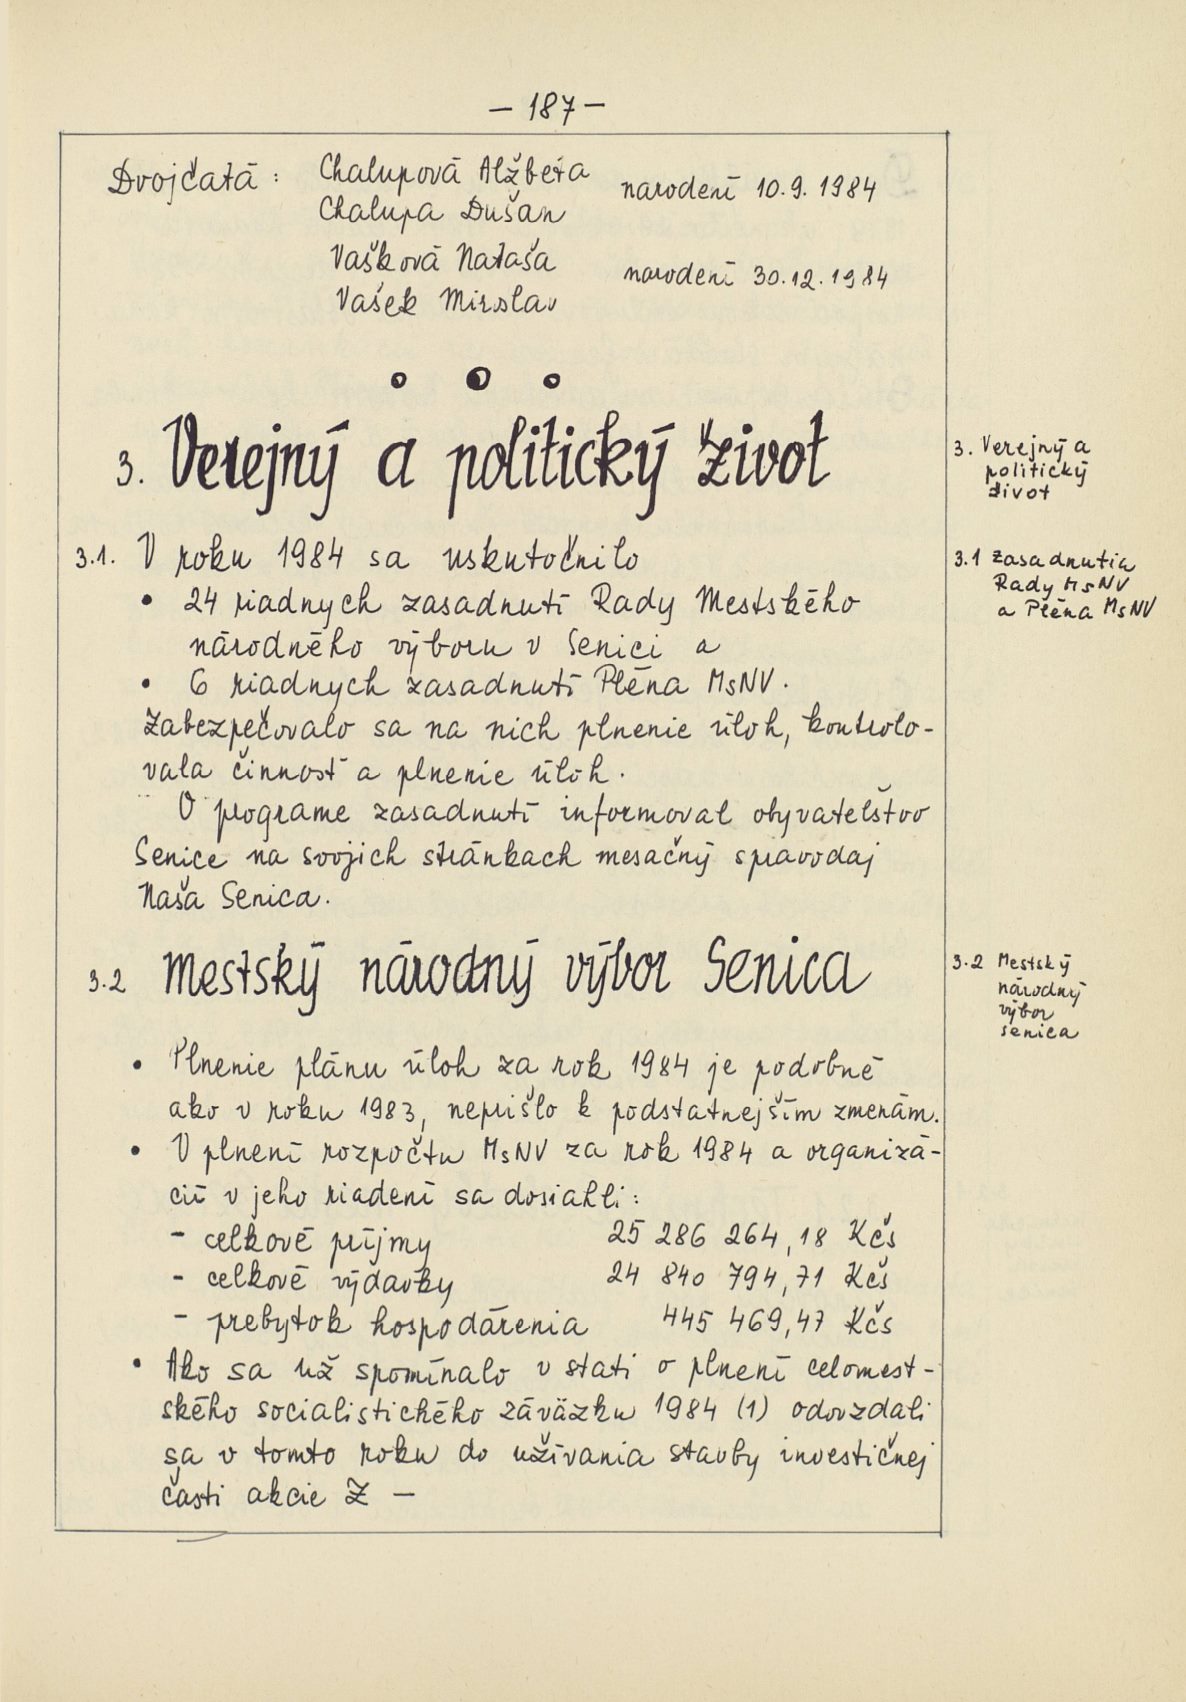 – 187 –
Dvojčatá : Chalupová Alžbeta narodení 10.9.1984
Chalupa Dušan
Vašková Nataša narodení 30.12.1984
Vašek Miroslav
3. Verejný a politický život
3. Verejný a
politický
život
3.1. V roku 1984 sa uskutočnilo
3.1 Zasadnutia
Rady MsNV
a Pléna MsNV
• 24 riadnych zasadnutí Rady Mestského
národného výboru v Senici a
• 6 riadnych zasadnutí Pléna MsNV.
Zabezpečovalo sa na nich plnenie úloh, kontrolo-
vala činnosť a plnenie úloh.
O programe zasadnutí informoval obyvateľstvo
Senice na svojich stránkach mesačný spravodaj
Naša Senica.
3.2 Mestský národný výbor Senica
3.2 Mestský
národný
výbor
Senica
• Plnenie plánu úloh za rok 1984 je podobné
ako v roku 1983, neprišlo k podstatnejším zmenám.
• V plnení rozpočtu MsNV za rok 1984 a organizá-
cií v jeho riadení sa dosiahli :
- celkové príjmy 25 286 264,18 Kčs
- celkové výdavky 24 840 794,71 Kčs
- prebytok hospodárenia 445 469,47 Kčs
• Ako sa už spomínalo v stati o plnení celomest-
ského socialistického záväzku 1984 (1) odovzdali
sa v tomto roku do užívania stavby investičnej
časti akcie Z –